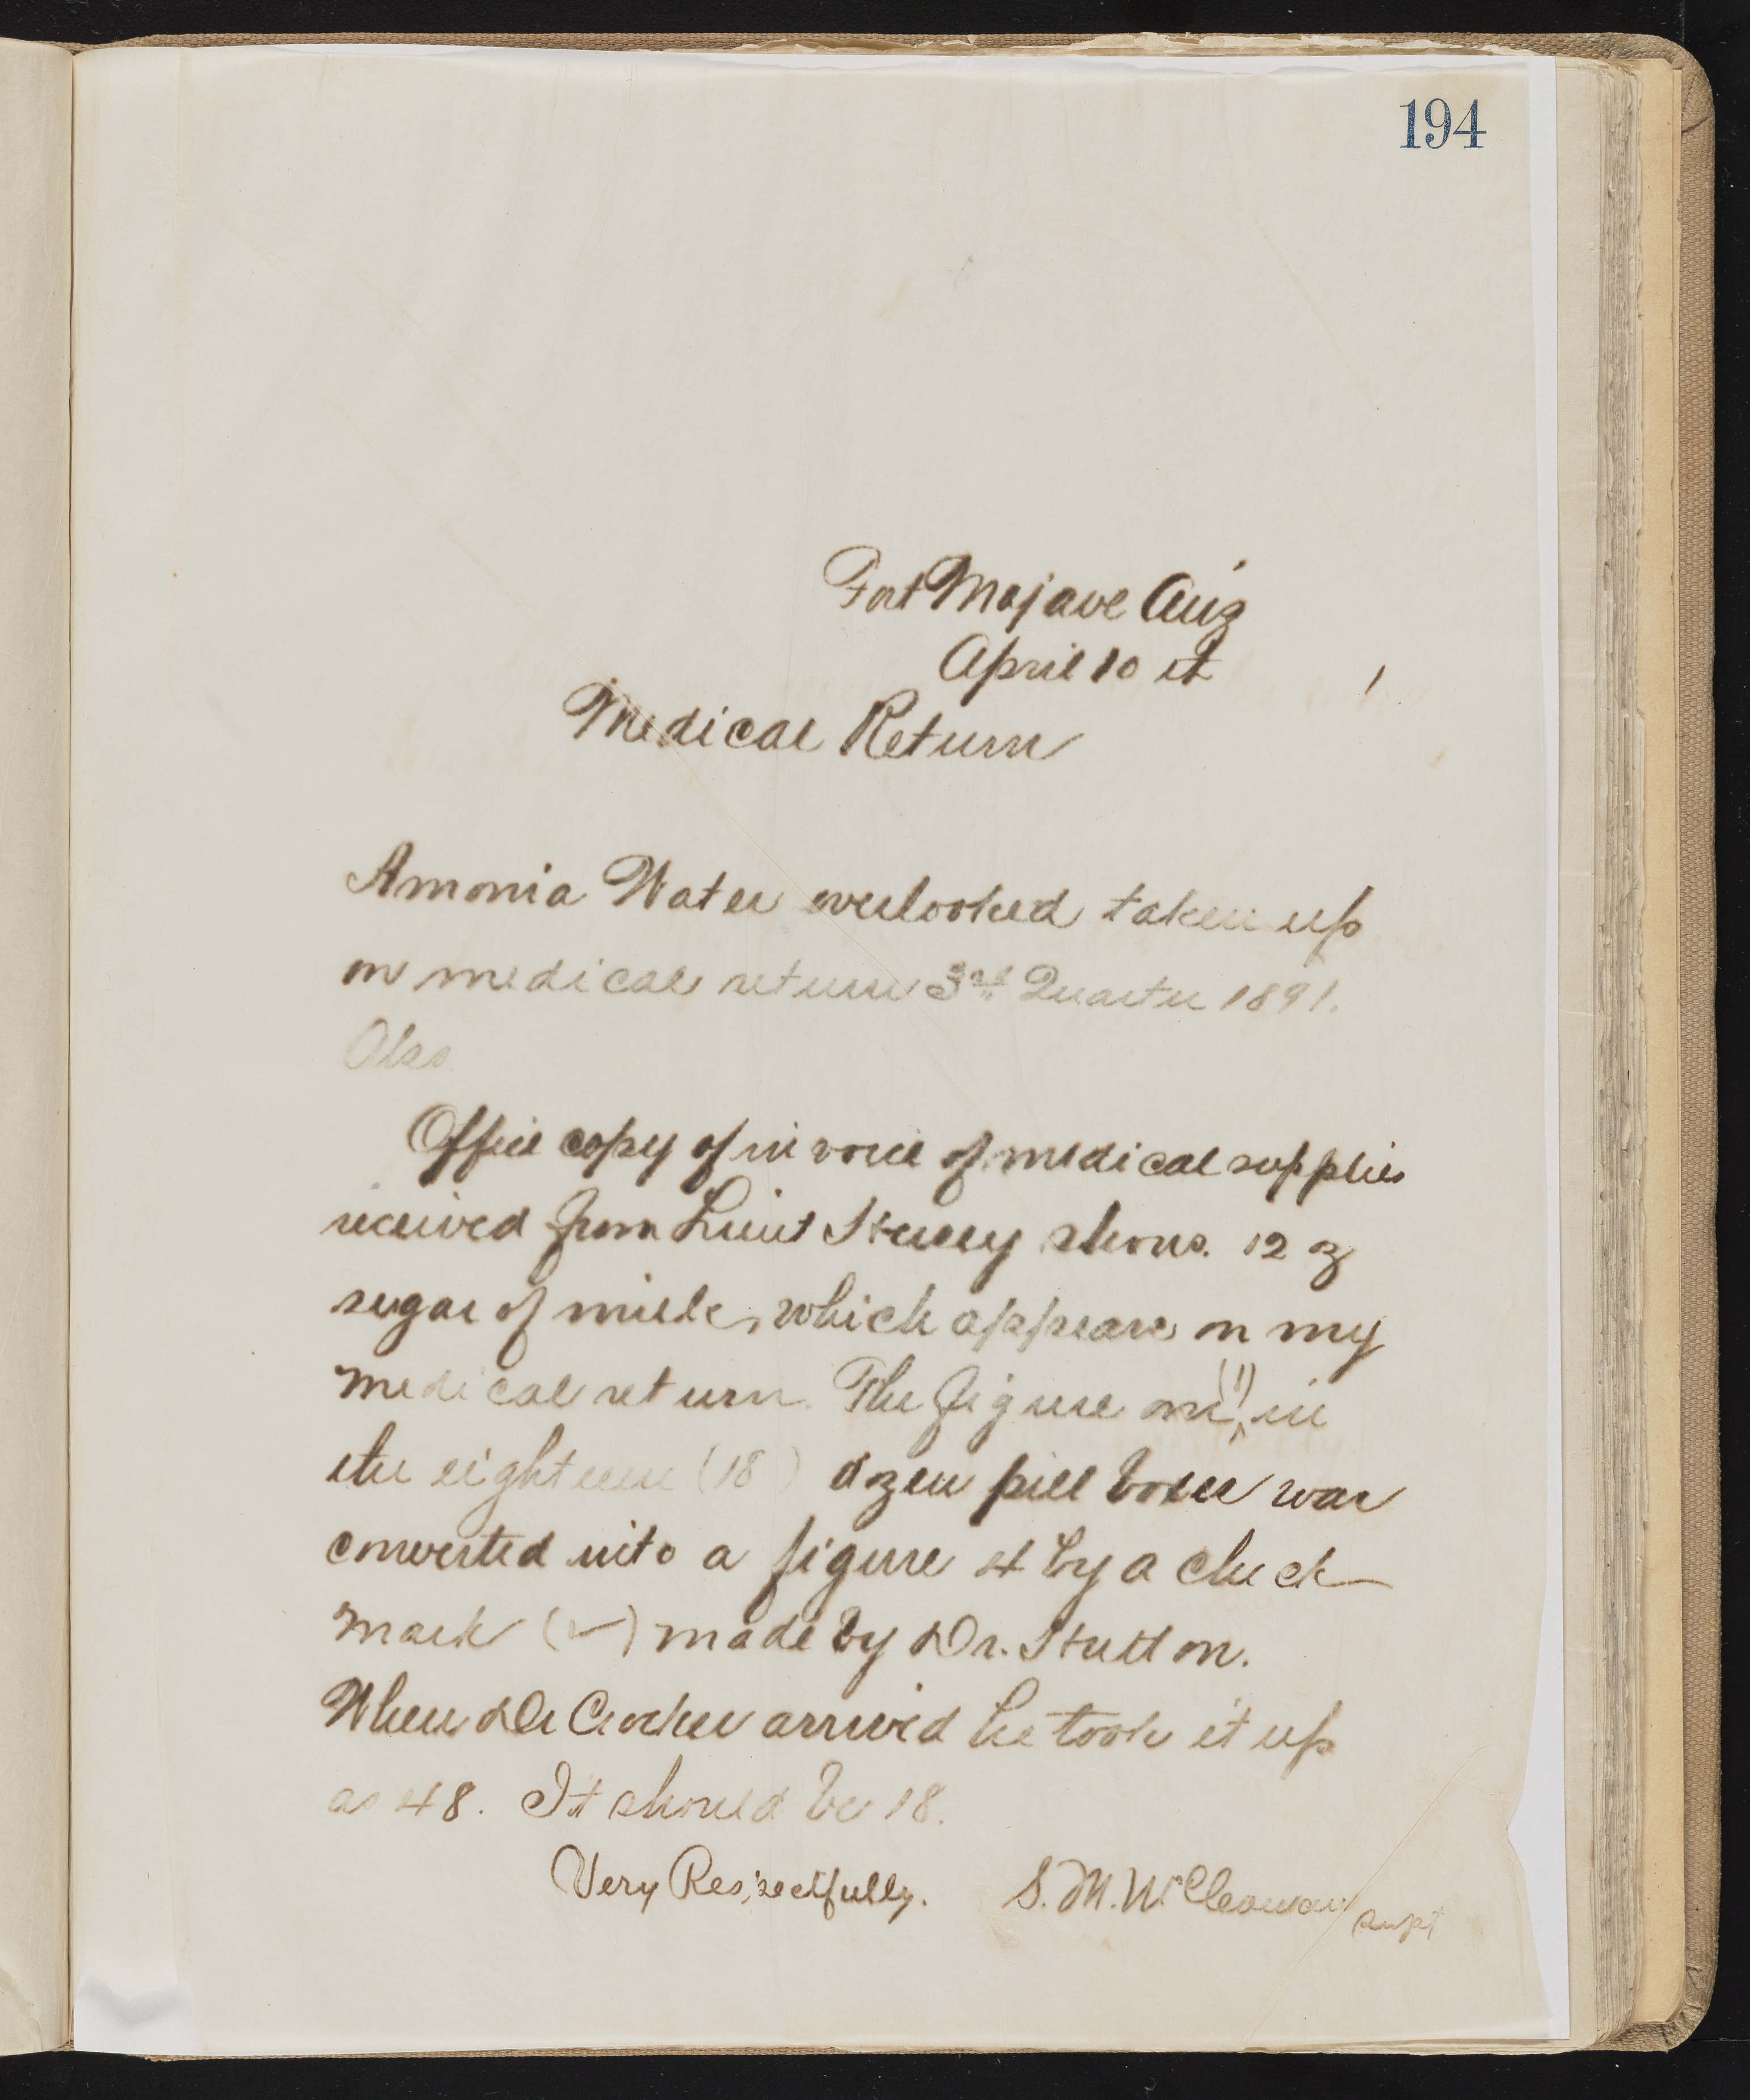 194
Fort Mojave Ariz
April 10
Medical Return
Amonia Water overlooked taken up
on medical return 3rd Quarter 1891.
Also
Office copy of invoice of medical supplies
received from Lieut shows. 12 oz
sugar of milk, which appears on my
medical return. The figure one (1) in
the eighteen (18) dozen pill boxes was
converted into a figure 4 by a check
mark (✓) made by Dr. Hutton.
When Dr Crocker arrived he took it up
as 48. It should be 18.
Very Respectfully. S. M. McCowan
supt